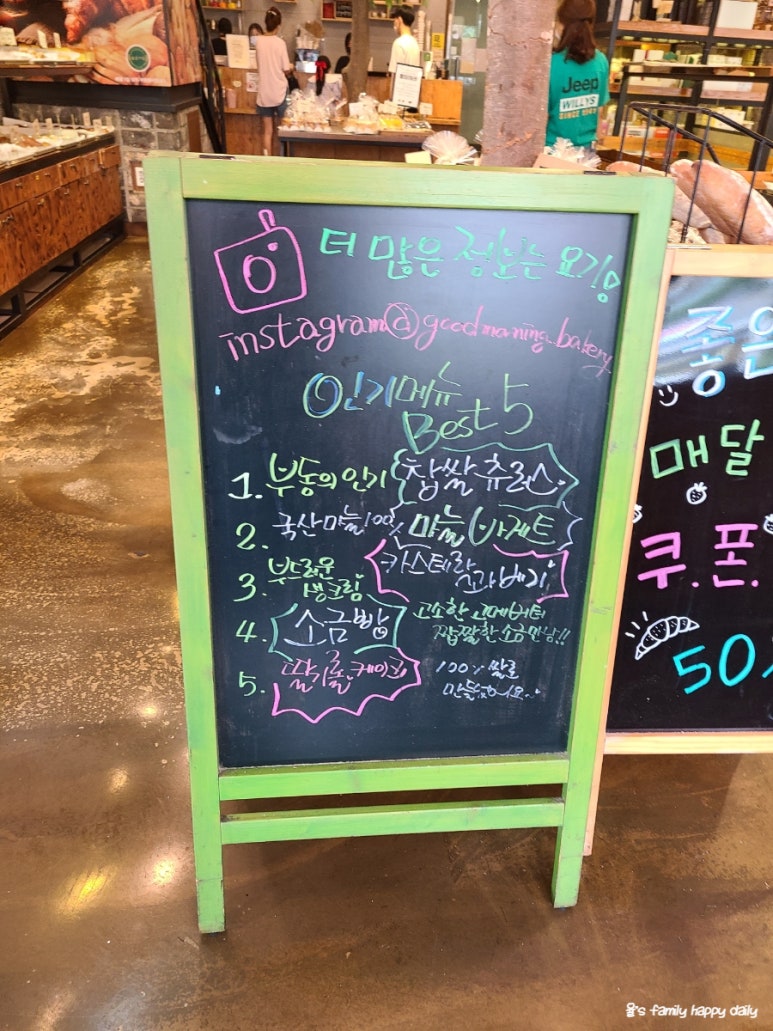 더 많은 정보는 요기!
instagram@goodmorning_bakery
인기메뉴
Best 5
1. 부동의 인기 찹쌀츄러스
2. 국산마늘100% 마늘바게트
3. 부드러운 생크림 카스테라 꽈배기
4. 소금빵 고소한 고메버터 짭짤한 소금만남!!
5. 딸기롤케이크 100% 쌀로 만들었어요
좋은
매달
쿠.폰.
50%
Jeep
WILLYS
SINCE 1941
율's family happy daily